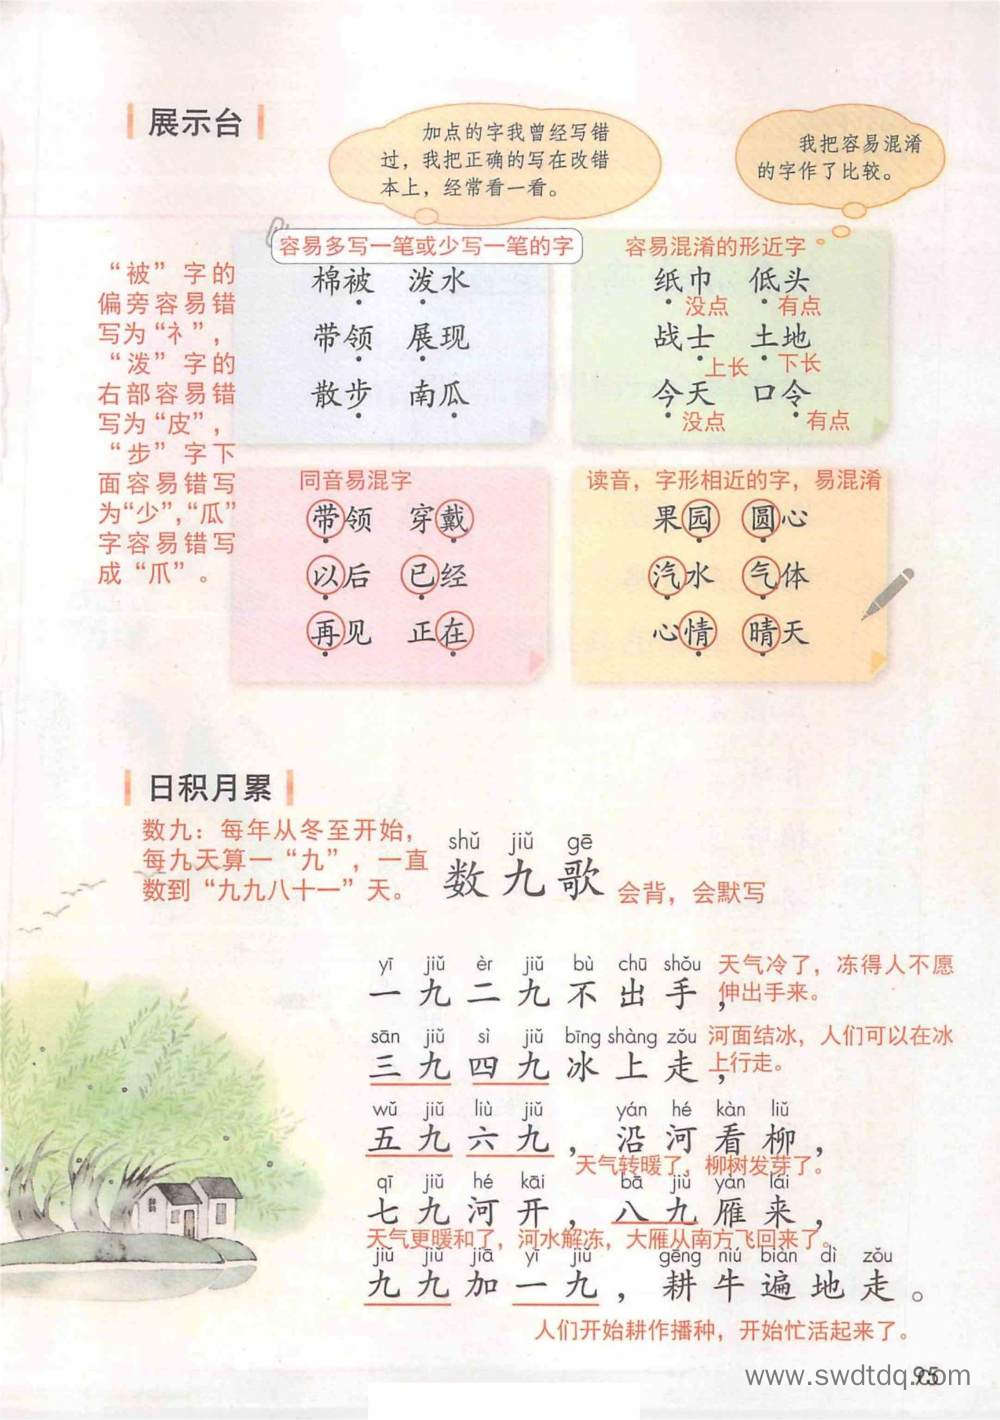 展示台
加点的字我曾经写错
过，我把正确的写在改错
本上，经常看一看。
我把容易混淆
的字作了比较。
“被”字的
偏旁容易错
写为“礻”，
“泼”字的
右部容易错
写为“皮”，
“步”字下
面容易错写
为“少”，“瓜”
字容易错写
成“爪”。
容易多写一笔或少写一笔的字
棉被 泼水
带领 展现
散步 南瓜
容易混淆的形近字
纸巾 低头
没点 有点
战士 土地
上长 下长
今天 口令
没点 有点
同音易混字
带领 穿戴
以后 已经
再见 正在
读音，字形相近的字，易混淆
果园 圆心
汽水 气体
心情 晴天
日积月累
数九：每年从冬至开始，
每九天算一“九”，一直
数到“九九八十一”天。
shǔ jiǔ gē
数九歌
会背，会默写
yī jiǔ èr jiǔ bù chū shǒu
一九二九不出手，
天气冷了，冻得人不愿
伸出手来。
sān jiǔ sì jiǔ bīng shàng zǒu
三九四九冰上走，
河面结冰，人们可以在冰
上行走。
wǔ jiǔ liù jiǔ yán hé kàn liǔ
五九六九，沿河看柳，
天气转暖了，柳树发芽了。
qī jiǔ hé kāi bā jiǔ yàn lái
七九河开，八九雁来，
天气更暖和了，河水解冻，大雁从南方飞回来了。
jiǔ jiǔ jiā yī jiǔ gēng niú biàn dì zǒu
九九加一九，耕牛遍地走。
人们开始耕作播种，开始忙活起来了。
95
www.swdtdq.com